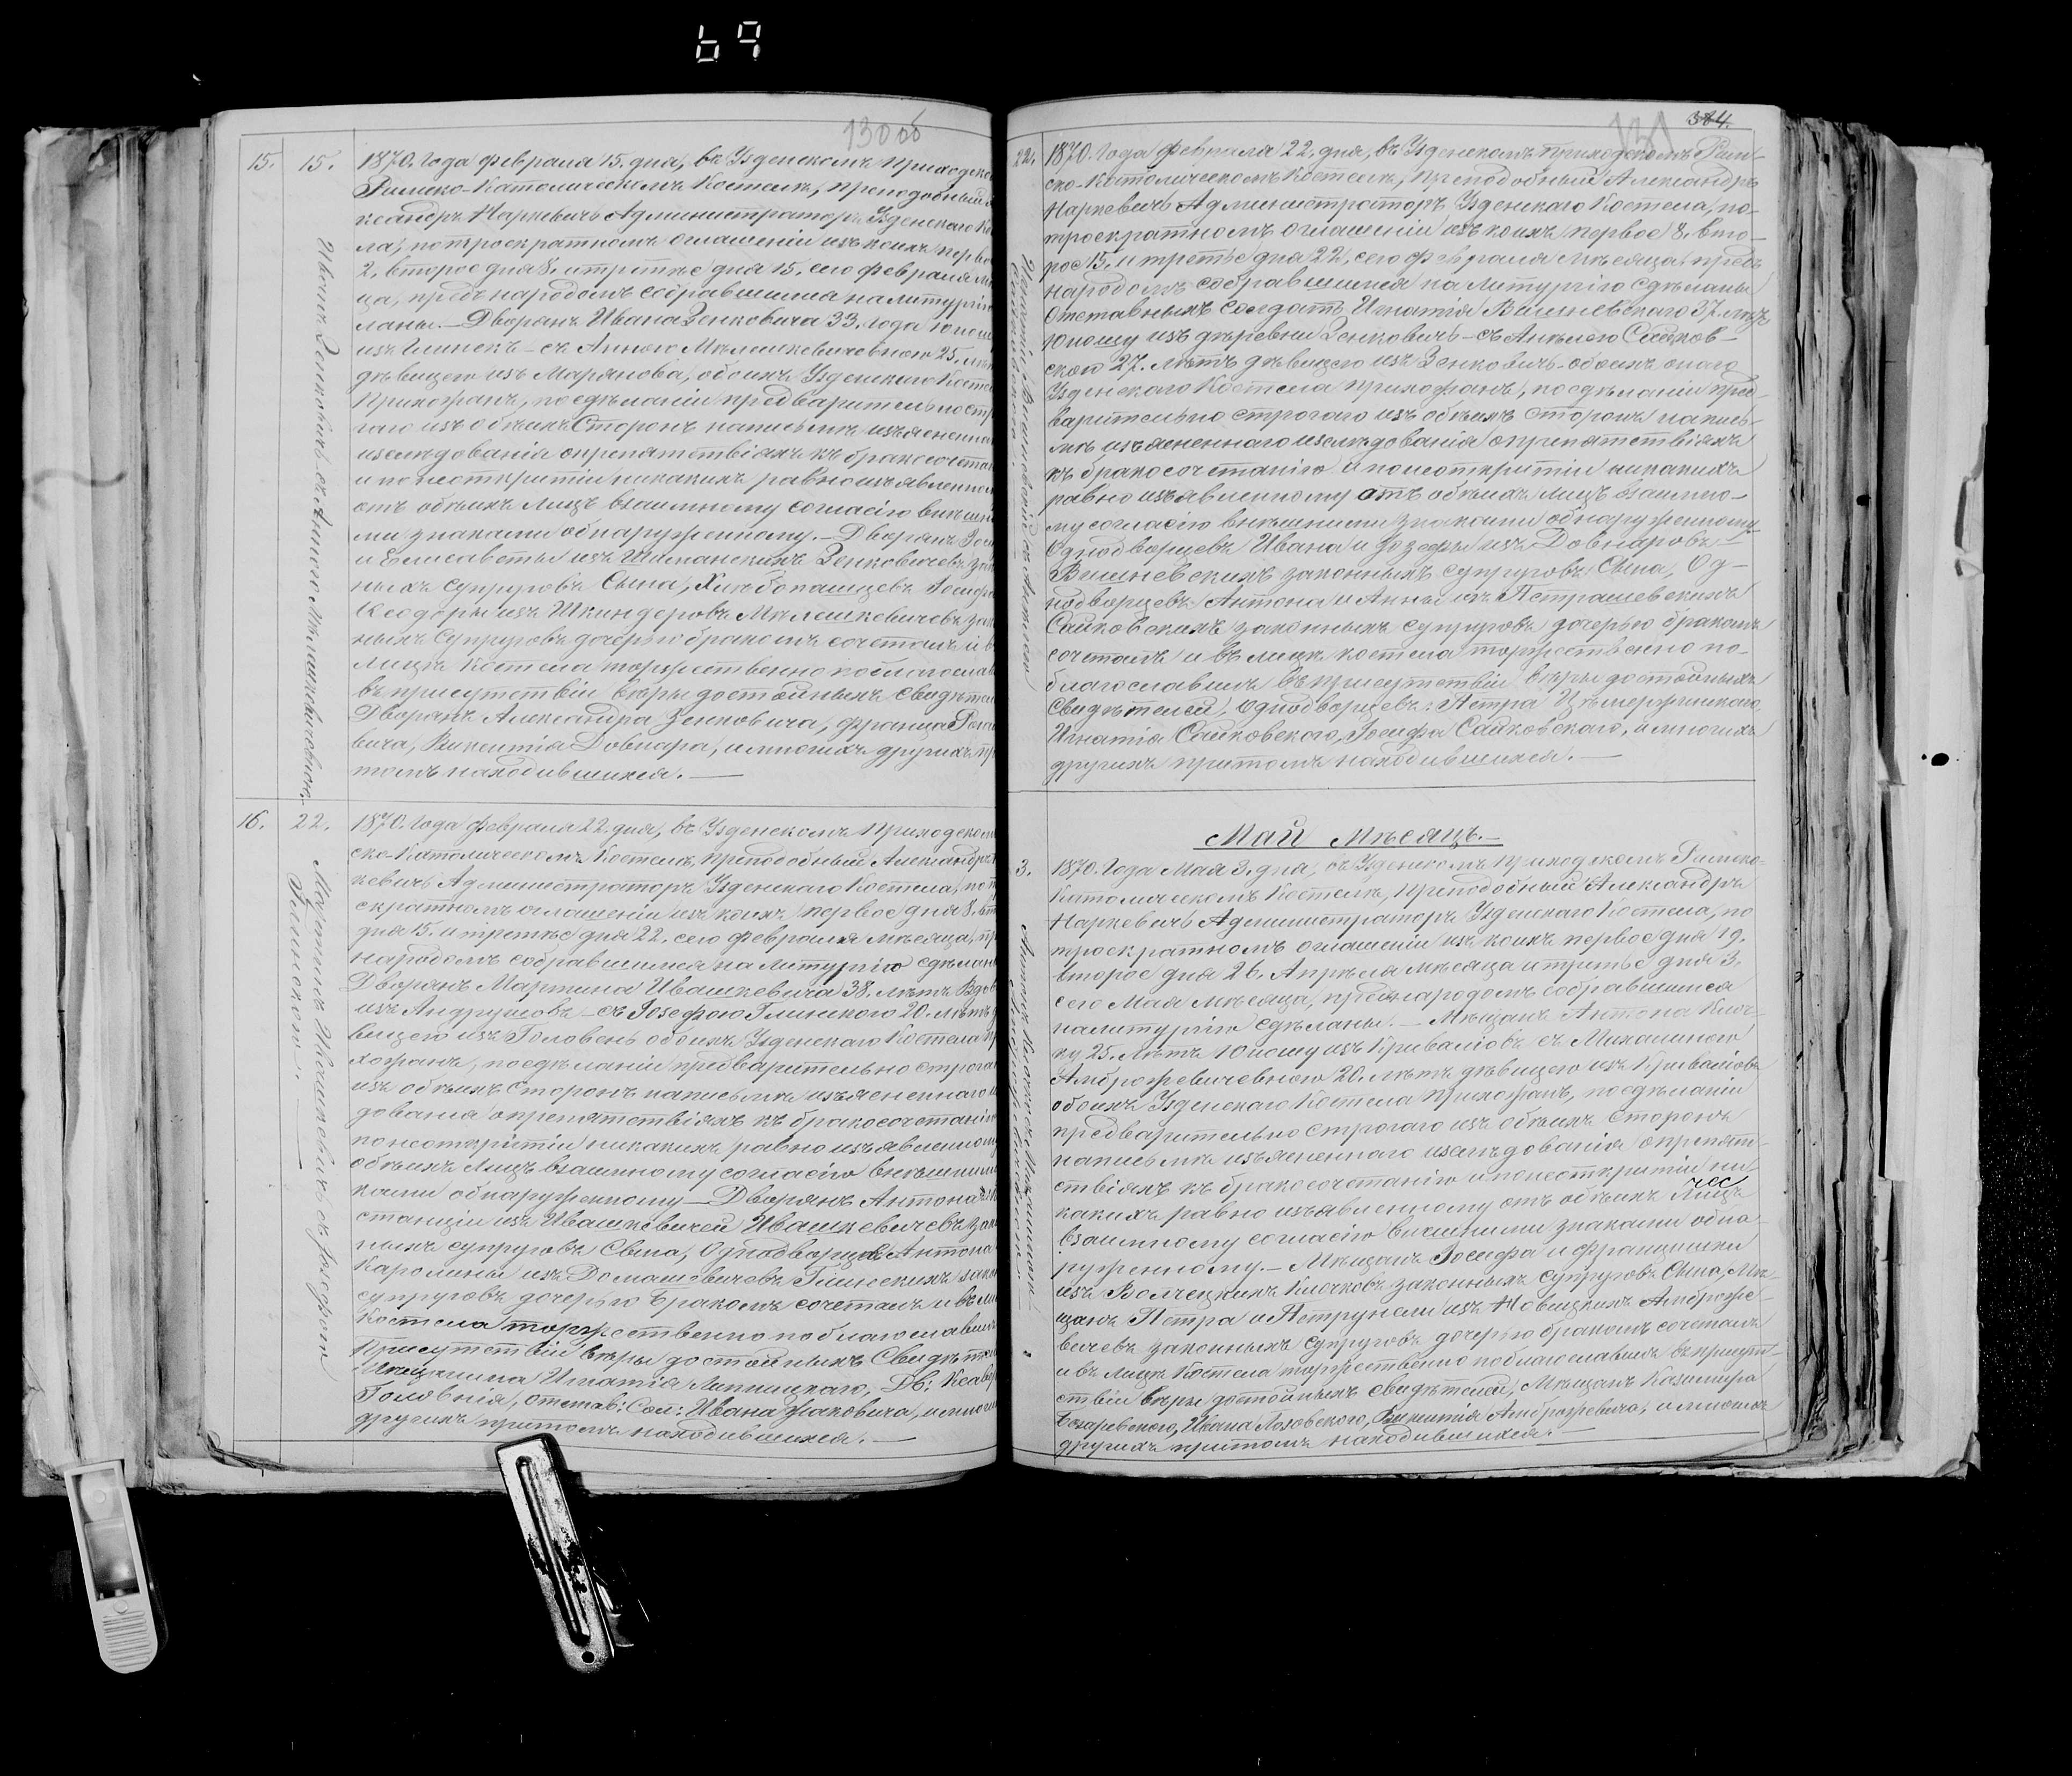 69
130 об
15.
15.
Иванъ Зенковичъ съ Анною Мѣлешкевичовною.
1870. Года Февраля 15. дня, въ Узденскомъ Приходско
Римско-Католическомъ Костелѣ, Преподобный
Наркевичъ Администраторъ Узденскаго Ко
ла, потроекратномъ оглашеніи изъ коихъ перво
2, второе дня 8. итретье дня 15. сего Февраля
ца, предъ народомъ собравшимся на литургію
ланы. — Дворянъ Ивана Зенковича 33. Года юнош
изъ Глинекъ — съ Анною Мѣлешкевичевною 25. лѣт
дѣвицею изъ Марянова, обоихъ Узденскаго Косте
Прихожанъ, посдѣланіи предварительно стр
гаго изъ обѣихъ Сторонъ написьмѣ изъясненна
изслѣдованія опрепятствіяхъ къ бракосочетан
и понеоткрытіи никакихъ равно изъявленном
отъ обѣихъ Лицъ взаимному согласію внѣшн
ми знаками обнаруженному. — Дворянъ
и Елисаветы изъ Шиманскихъ Зенковичевъ зак
ныхъ супруговъ Сына, Хлѣбопашцевъ Іосифа
Ѳеодоры изъ Шкиндеровъ Мѣлешкевичевъ зак
ныхъ Супруговъ дочерью бракомъ сочеталъ и в
Лицѣ Костела торжественно поблагослав
въ присутствіи вѣры достойныхъ Свидѣтел
Дворянъ Александра Зенковича, Франца
вича, Викентія Довнара, имногихъ другихъ пр
томъ находившихся. —
16.
22.
Мартинъ Ивашкевичъ съ Іозефою
Глинскою.
1870. Года Февраля 22. дня, въ Узденскомъ Приходском
ско-Католическомъ Костелѣ, Преподобный Александръ
кевичъ Администраторъ Узденскаго Костела, по т
екратномъ оглашеніи изъ коихъ первое дня 8. вт
дня 15. итретье дня 22. сего Февраля мѣсяца, пр
народомъ собравшимся на Литургію сдѣлан
Дворянъ Мартина Ивашкевича 38. лѣтъ Вдов
изъ Андрушовъ — съ Іозефою Глинскою 20. лѣтъ д
вицею изъ Головень обоихъ Узденскаго Костела Пр
хожанъ, посдѣланіи предварительно строга
изъ обѣихъ Сторонъ написьмѣ изъясненнаго и
дованія опрепятствіяхъ къ бракосочетанію
понеоткрытіи никакихъ равно изъявленном
обѣихъ Лицъ взаимному согласію внѣшними
ками обнаруженному — Дворянъ Антона
станціи изъ Ивашкевичей Ивашкевичевъ зак
ныхъ супруговъ Сына, Однодворцевъ Антона
Каролины изъ Домашевичевъ Глинскихъ закон
супруговъ дочерью бракомъ сочеталъ и въ ли
Костела торжественно поблагославилъ
Присутствіи вѣры достойныхъ Свидѣтел
Мѣщанина Игнатія Липницкаго, Дв: Ксавер
Головнія, отстав: Сол: Ивана Жаковича, имног
другихъ притомъ находившихся. —
384.
131
22.
Игнатій Вишневскій съ Анѣлею
Сайковскою.
1870. Года Февраля 22. дня, въ Узденскомъ Приходскомъ Рим-
ско-Католическомъ Костелѣ, Преподобный Александръ
Наркевичъ Администраторъ Узденскаго Костела, по-
троекратномъ оглашеніи изъ коихъ первое 8. вто-
рое 15. и третье дня 22, сего Февраля мѣсяца, предъ
народомъ собравшимся на Литургію сдѣланы
Отставныхъ Солдатъ Игнатія Вишневскаго 37. лѣтъ
Юношу изъ деревни Зенковичъ — съ Анѣлею Сайков-
скою 27. лѣтъ дѣвицею изъ Зенковичъ — обоихъ онаго
Узденскаго Костела прихожанъ, посдѣланіи пред-
варительно строгаго изъ обѣихъ сторонъ напись-
мѣ изъясненнаго изслѣдованія опрепятствіяхъ
къ бракосочетанію и понеоткрытіи никакихъ
равно изъявленному отъ обѣихъ лицъ взаимно-
му согласію внѣшними знаками обнаруженному —
Однодворцевъ Ивана и Іозефы изъ Довнаровъ —
Вишневскихъ законныхъ супруговъ Сына, Од-
нодворцевъ Антона и Анны изъ Петрашевскихъ
Сайковскихъ законныхъ супруговъ дочерью бракомъ
сочеталъ и въ лицѣ костела торжественно по-
благославилъ въ присутствіи вѣры достойныхъ
Свидѣтелей, однодворцевъ: Петра
Игнатія Сайковскаго, Іосифа Сайковскаго, и многихъ
другихъ притомъ находившихся. —
Май Мѣсяцъ. —
3.
1870. Года Мая 3. дня, въ Узденскомъ Приходскомъ Римско-
Католическомъ Костелѣ, Преподобный Александръ
Наркевичъ Администраторъ Узденскаго Костела, по
троекратномъ оглашеніи изъ коихъ первое дня 19.
второе дня 26. Апрѣля мѣсяца итретье дня 3.
сего Мая мѣсяца, преднародомъ собравшимся
налитургію сдѣланы. — Мѣщанъ Антона Клоч-
ку 25. лѣтъ Юношу изъ Криваловъ съ Михалиною
Амброжевичевною 20. лѣтъ дѣвицею изъ Криваловъ
обоихъ Узденскаго Костела прихожанъ, посдѣланіи
предварительно строгаго изъ обѣихъ сторонъ
написьмѣ изъясненнаго изслѣдованія опрепят-
ствіяхъ къ бракосочетанію ипонеоткрытіи ни-
какихъ равно изъявленному отъ обѣихъ Лицъ
взаимному согласію внѣшними знаками обна-
руженному. — Мѣщанъ Іосифа и Францишки
изъ Волчецкихъ Клочковъ законныхъ супруговъ Сына, Мѣ-
щанъ Петра и Петрунели изъ Новицкихъ Амброже-
вичевъ законныхъ супруговъ дочерью бракомъ сочеталъ
и въ лицѣ Костела торжественно поблагославилъ въ присут-
ствіи вѣры достойныхъ свидѣтелей, Мѣщанъ Казимира
Ивана Лозовскаго, Викентія Амброжевича, и многихъ
другихъ притомъ находившихся. —